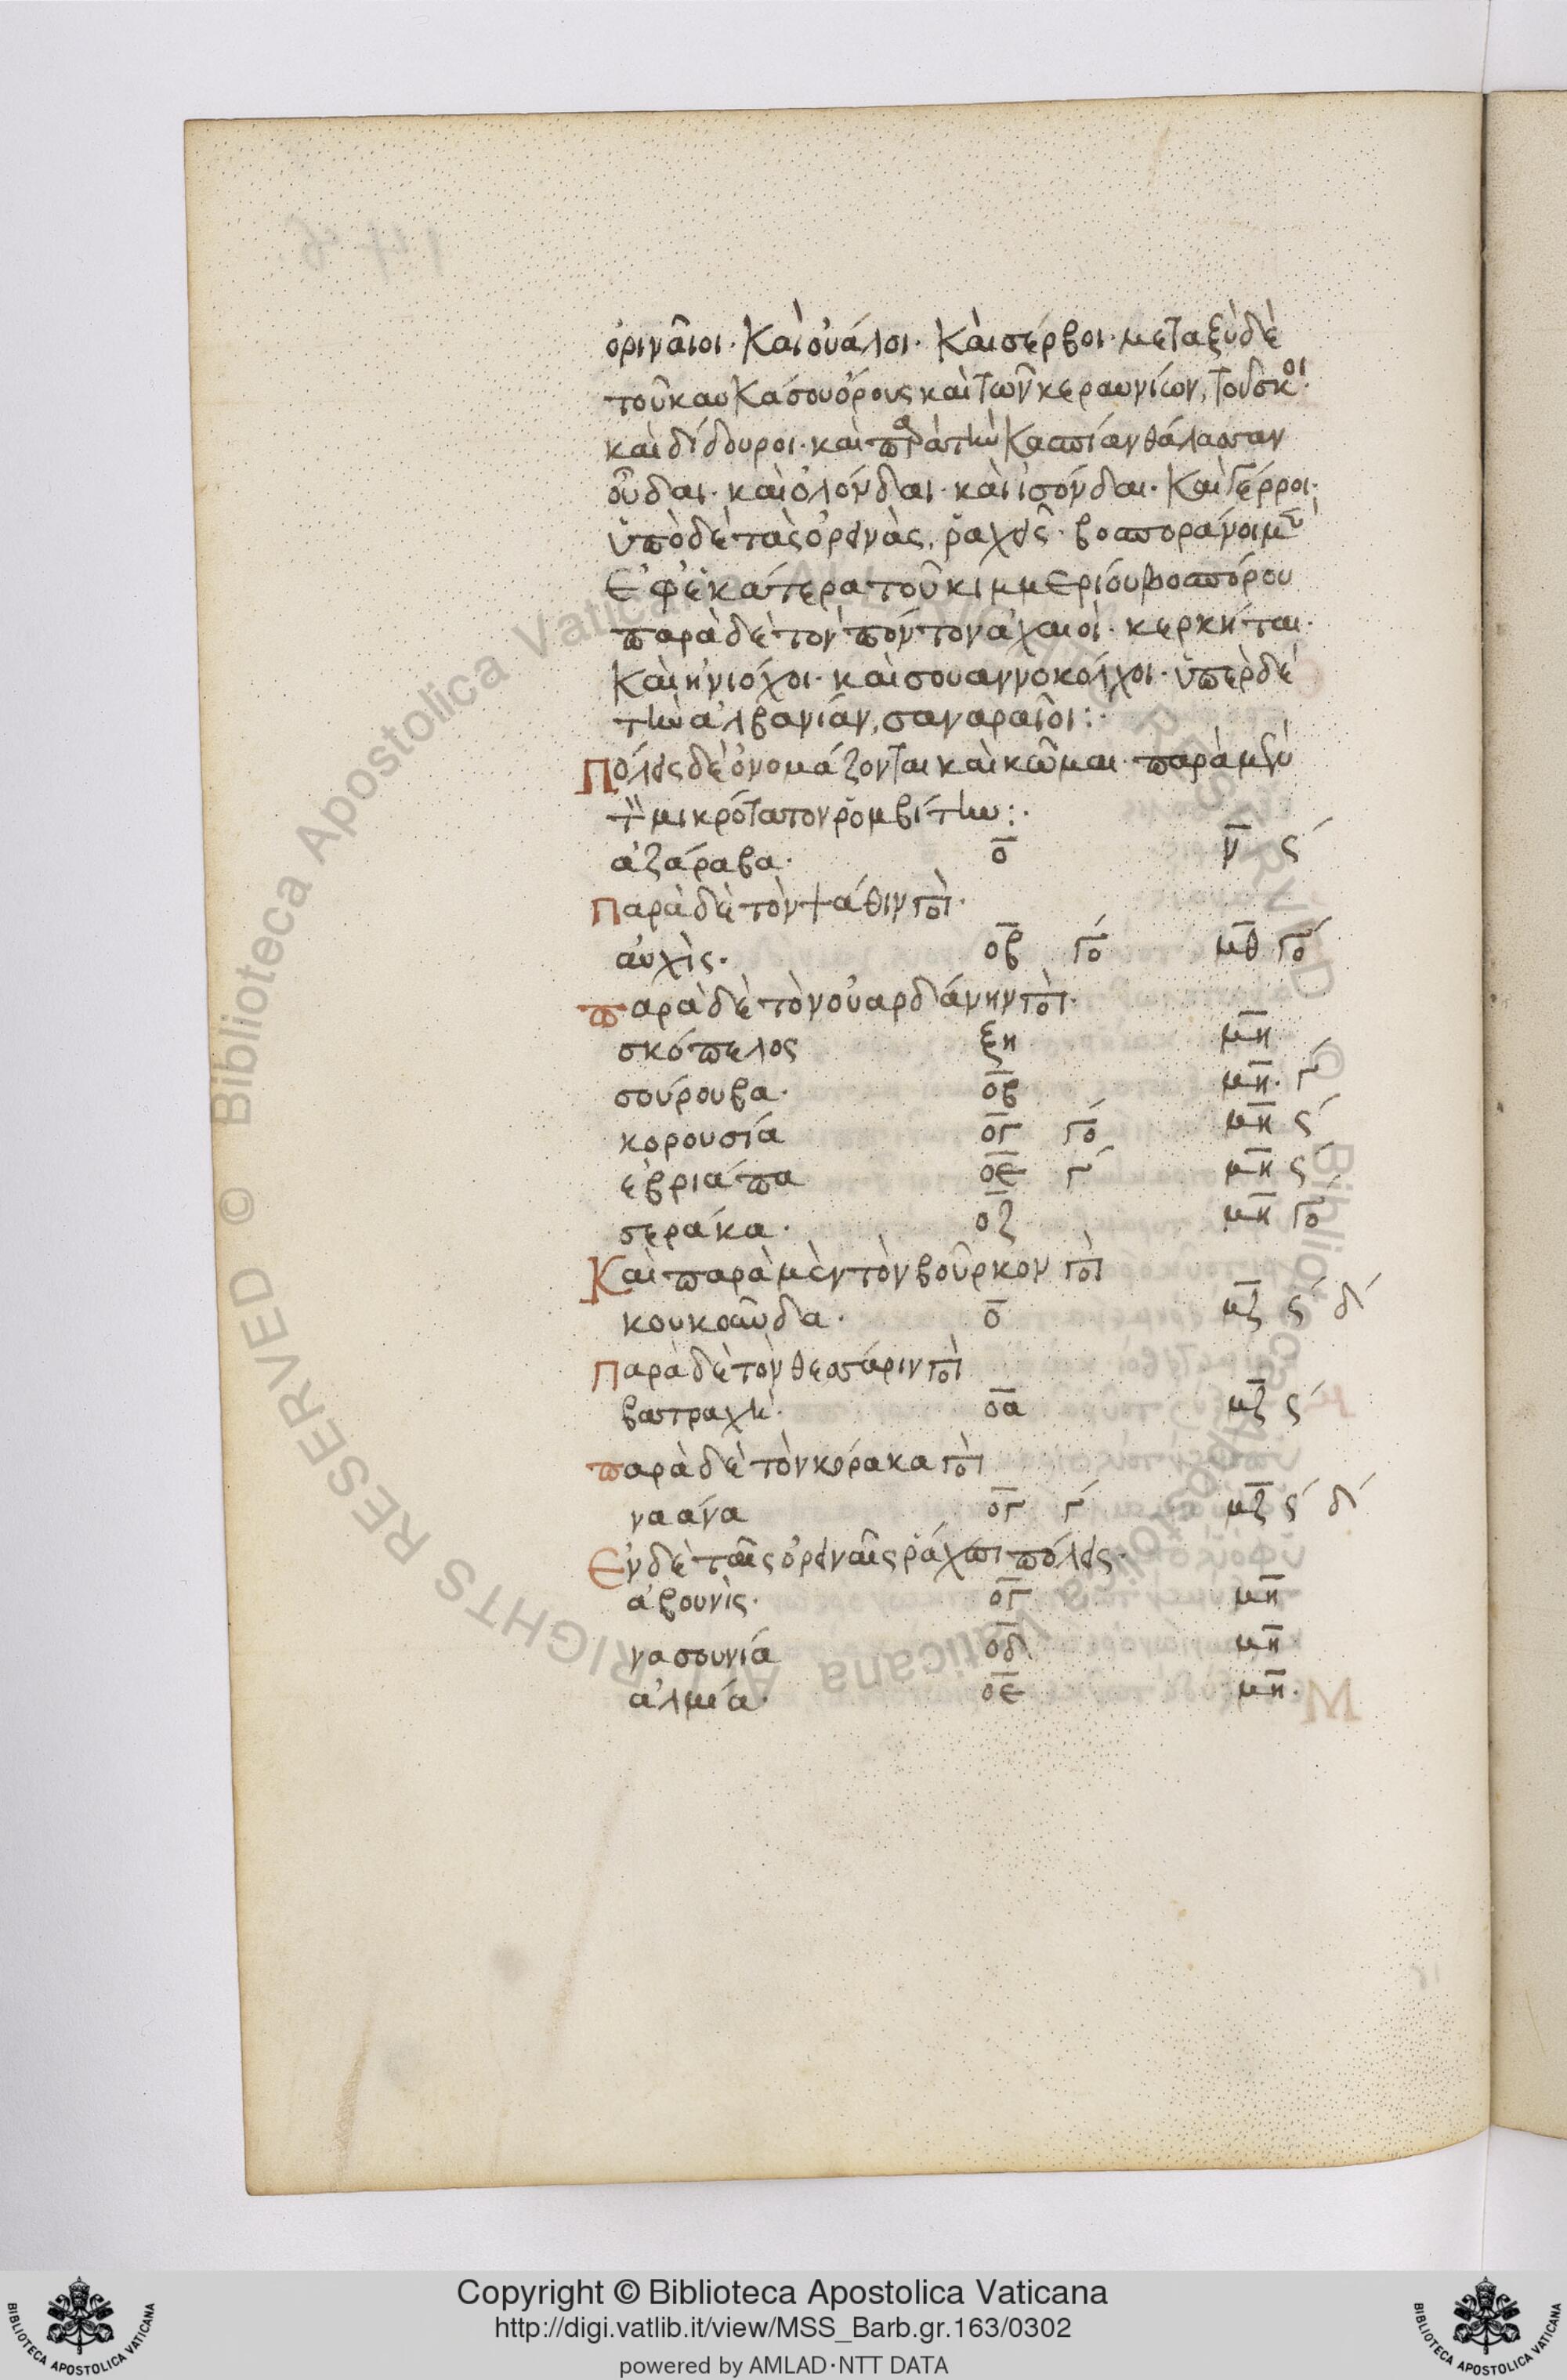 ὀριναῖοι· Καὶ οὐάλοι· Καὶ σέρβοι· μεταξὺ δὲ
τοῦ καυκάσου ὄρους καὶ τῶν κεραυνίων, τοῦσκοι·
καὶ δίδουροι· καὶ παρὰ τὴν Κασπίαν θάλασσαν
οὖδαι· καὶ ὀλόνδαι· καὶ ἰσόνδαι· Καὶ γέρροι·
ὑπὸ δὲ τὰς ὀρεινὰς, ῥαχεῖς· βοσποράνοι μὲν
Ἐφ' ἑκάτερα τοῦ κιμμερίου βοσπόρου
παρὰ δὲ τὸν πόντον ἀχαιοὶ· κερκήται·
Καὶ ἡνιόχοι· καὶ σουαννοκόλχοι· ὑπὲρ δὲ
τὴν ἀλβανίαν, σαναραῖοι:·
Πόλεις δὲ ὀνομάζονται καὶ κῶμαι· παρὰ μὲν
τὸν μικρότατον ῥομβίτην:·
ἀζάραβα· ο̅ ν̅ ς´
Παρὰ δὲ τὸν ψάθιν ποτ·
αὐχὶς· ο̅β̅ γο´ μ̅θ̅ γο´
παρὰ δὲ τὸν οὐαρδάνην ποτ·
σκόπελος ξη μ̅η̅
σούρουβα· ο̅β̅ μ̅η̅· γ´
κορουσία ο̅γ̅ γο´ μ̅η̅ ς´
ἐβριάπα ο̅ε̅ γ´ μ̅η̅ ς´
σεράκα· οζ μ̅η̅ γο´
Καὶ παρὰ μὲν τὸν βοῦρκον ποτ
κουκοαῦδα· ο̅ μ̅ζ̅ ς´ δ´
Παρὰ δὲ τὸν θεσσύριν ποτ
βατραχὴ· ο̅α̅ μ̅ζ̅ ς´
παρὰ δὲ τὸν κόρακα ποτ
ναάνα ο̅γ̅ γ´ μ̅ζ̅ ς´ δ´
Ἐν δὲ ταῖς ὀρειναῖς ῥάχεσι πόλεις·
ἀβουνὶς· ο̅γ̅ μ̅η̅
νασουνία ο̅δ̅ μ̅η̅
ἀλμία· ο̅ε̅ μ̅η̅·
© Biblioteca Apostolica Vaticana ALL RIGHTS RESERVED
Copyright © Biblioteca Apostolica Vaticana
http://digi.vatlib.it/view/MSS_Barb.gr.163/0302
powered by AMLAD·NTT DATA
BIBLIOTECA APOSTOLICA VATICANA
BIBLIOTECA APOSTOLICA VATICANA